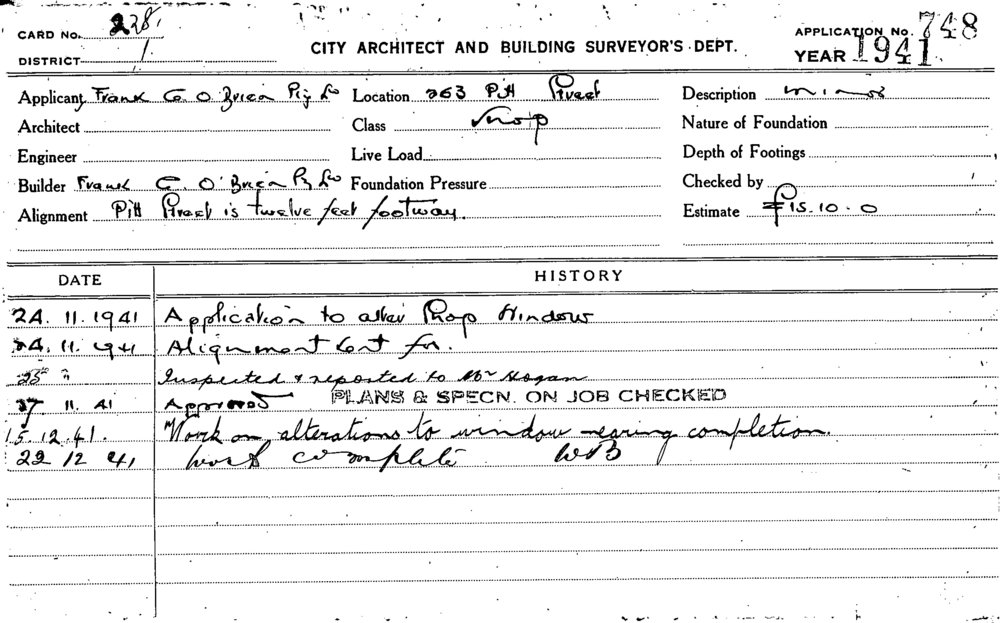 CARD No. 228
DISTRICT 1
CITY ARCHITECT AND BUILDING SURVEYOR'S DEPT.
APPLICATION No. 748
YEAR 1941
Applicant Frank G. O'Brien Pty Ld Location 263 Pitt Street Description minor
Architect Class Shop Nature of Foundation
Engineer Live Load Depth of Footings
Builder Frank G. O'Brien Pty Ld Foundation Pressure Checked by
Alignment Pitt Street is twelve feet footway. Estimate £15.10.0
DATE HISTORY
24.11.1941 Application to alter Shop Window
24.11.1941 Alignment Cert for.
25 " Inspected & reported to Mr Hogan
27 11.41 Approved PLANS & SPECN. ON JOB CHECKED
15.12.41. Work on alterations to window nearing completion.
22 12 41 Work complete WB